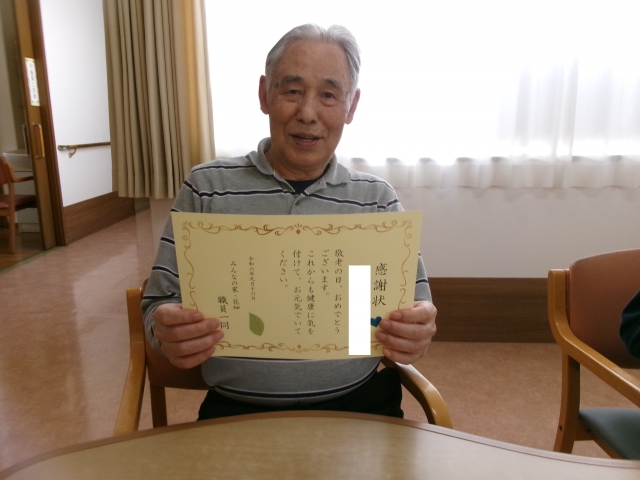 感謝状
敬老の日、おめでとう
ございます。
これからも健康に気を
付けて、お元気でいて
ください。
令和六年九月十六日
みんなの家・
職員一同